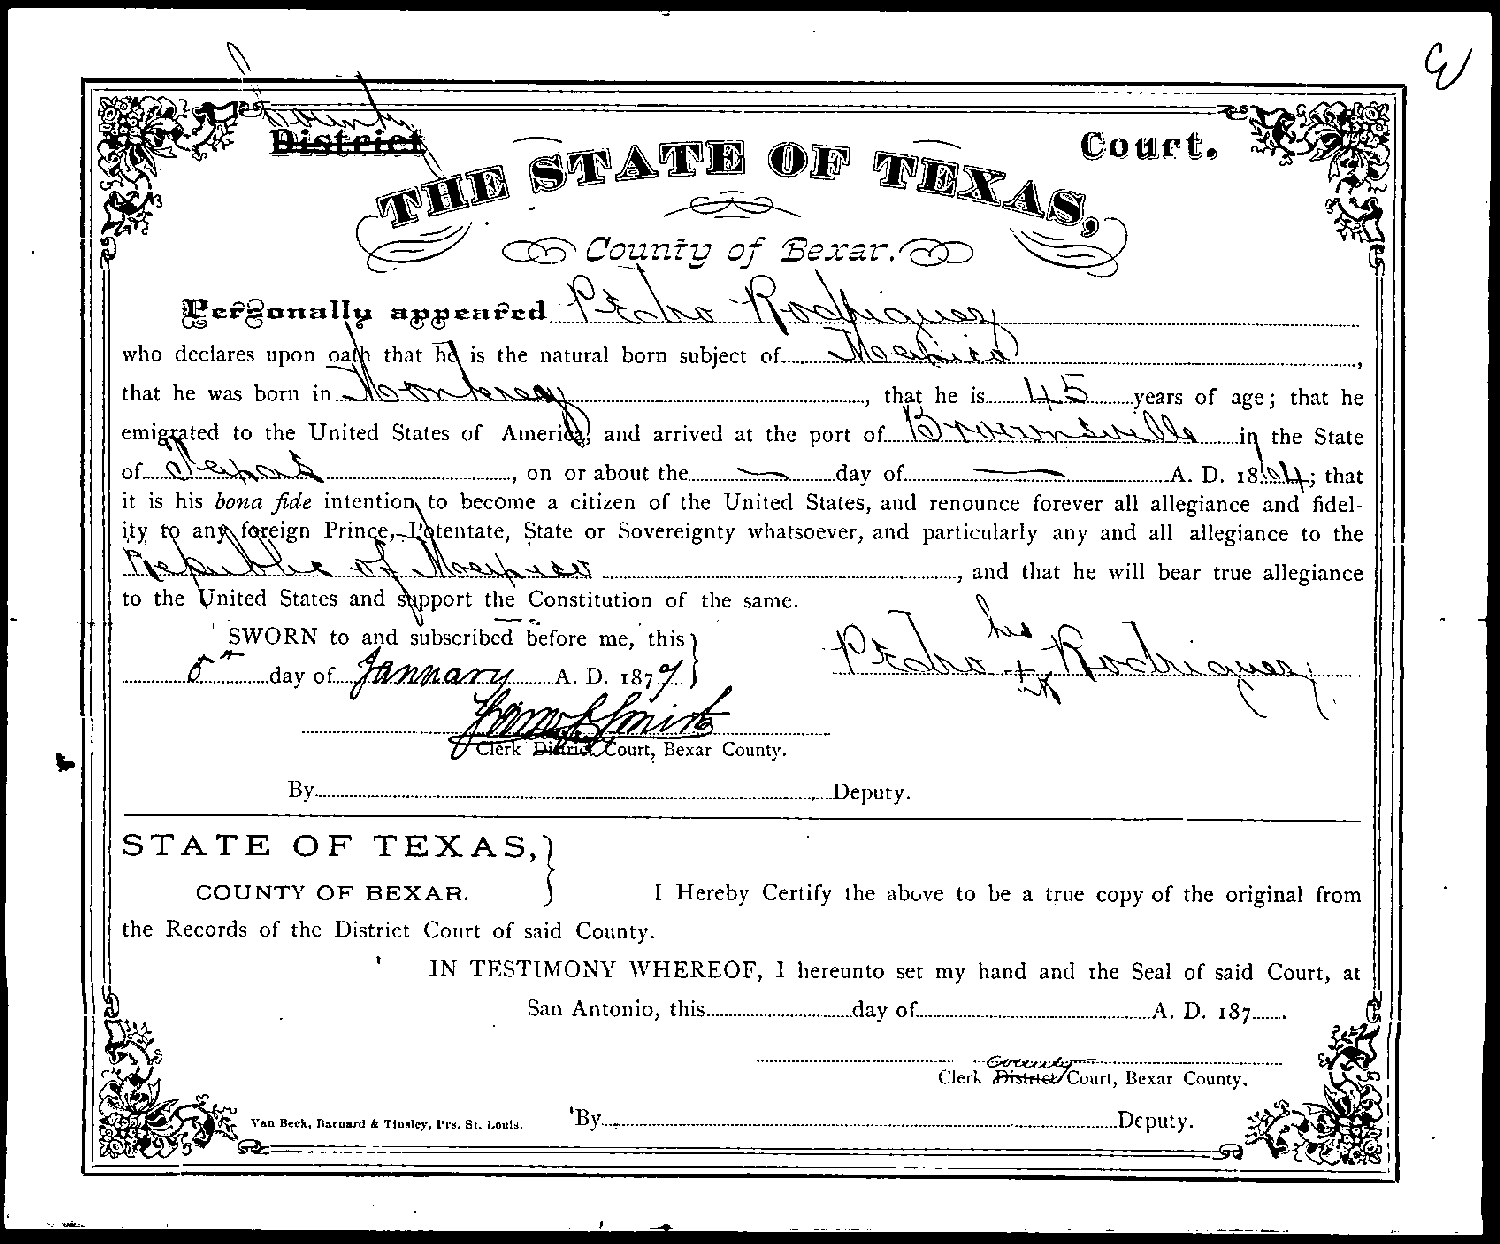 County
District Court.
THE STATE OF TEXAS,
County of Bexar.
Personally appeared Pedro Rodriguez
who declares upon oath that he is the natural born subject of Mexico,
that he was born in Monterey, that he is 45 years of age; that he
emigrated to the United States of America, and arrived at the port of Brownsville in the State
of Texas, on or about the — day of — A. D. 1864; that
it is his bona fide intention to become a citizen of the United States, and renounce forever all allegiance and fidel-
ity to any foreign Prince, Potentate, State or Sovereignty whatsoever, and particularly any and all allegiance to the
Republic of Mexico, and that he will bear true allegiance
to the United States and support the Constitution of the same.
SWORN to and subscribed before me, this
day of January A. D. 1879
Pedro his x Rodriguez
Smith
Clerk District Court, Bexar County.
By Deputy.
STATE OF TEXAS,
COUNTY OF BEXAR.
I Hereby Certify the above to be a true copy of the original from
the Records of the District Court of said County.
IN TESTIMONY WHEREOF, I hereunto set my hand and the Seal of said Court, at
San Antonio, this day of A. D. 187
County
Clerk District Court, Bexar County.
By Deputy.
Van Beek, Barnard & Tinsley, Prs. St. Louis.